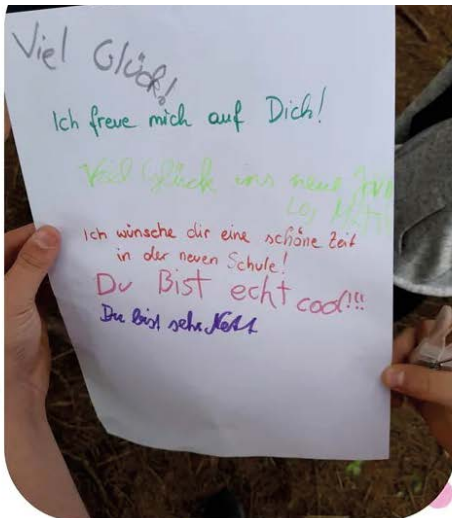 Viel Glück!
Ich freue mich auf Dich!
Viel Glück ins neue
Ich wünsche dir eine schöne Zeit
in der neuen Schule!
Du Bist echt cool!!!
Du bist sehr Nett